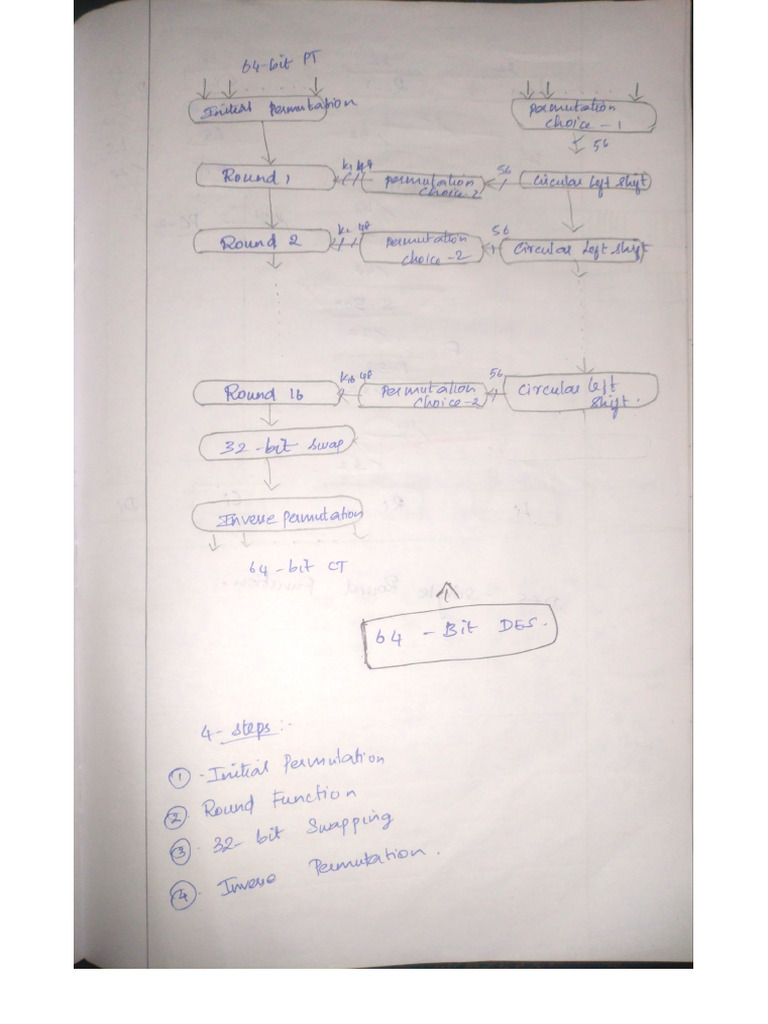 64-bit PT
Initial Permutation
Permutation
choice - 1
56
Round 1
K1 48
Permutation
choice-2
56
Circular Left Shift
Round 2
48
Permutation
choice -2
56
Circular Left Shift
Round 16
K16 48
Permutation
choice-2
56
Circular Left
Shift.
32-bit Swap
Inverse Permutation
64-bit CT
64 - Bit DES.
4-steps:-
① Initial Permutation
② Round Function
③ 32-bit Swapping
④ Inverse Permutation.